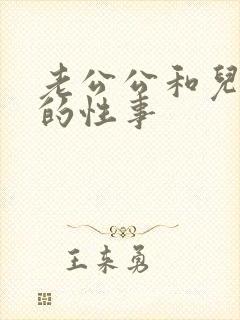 老公公和兒
的性事
王来勇